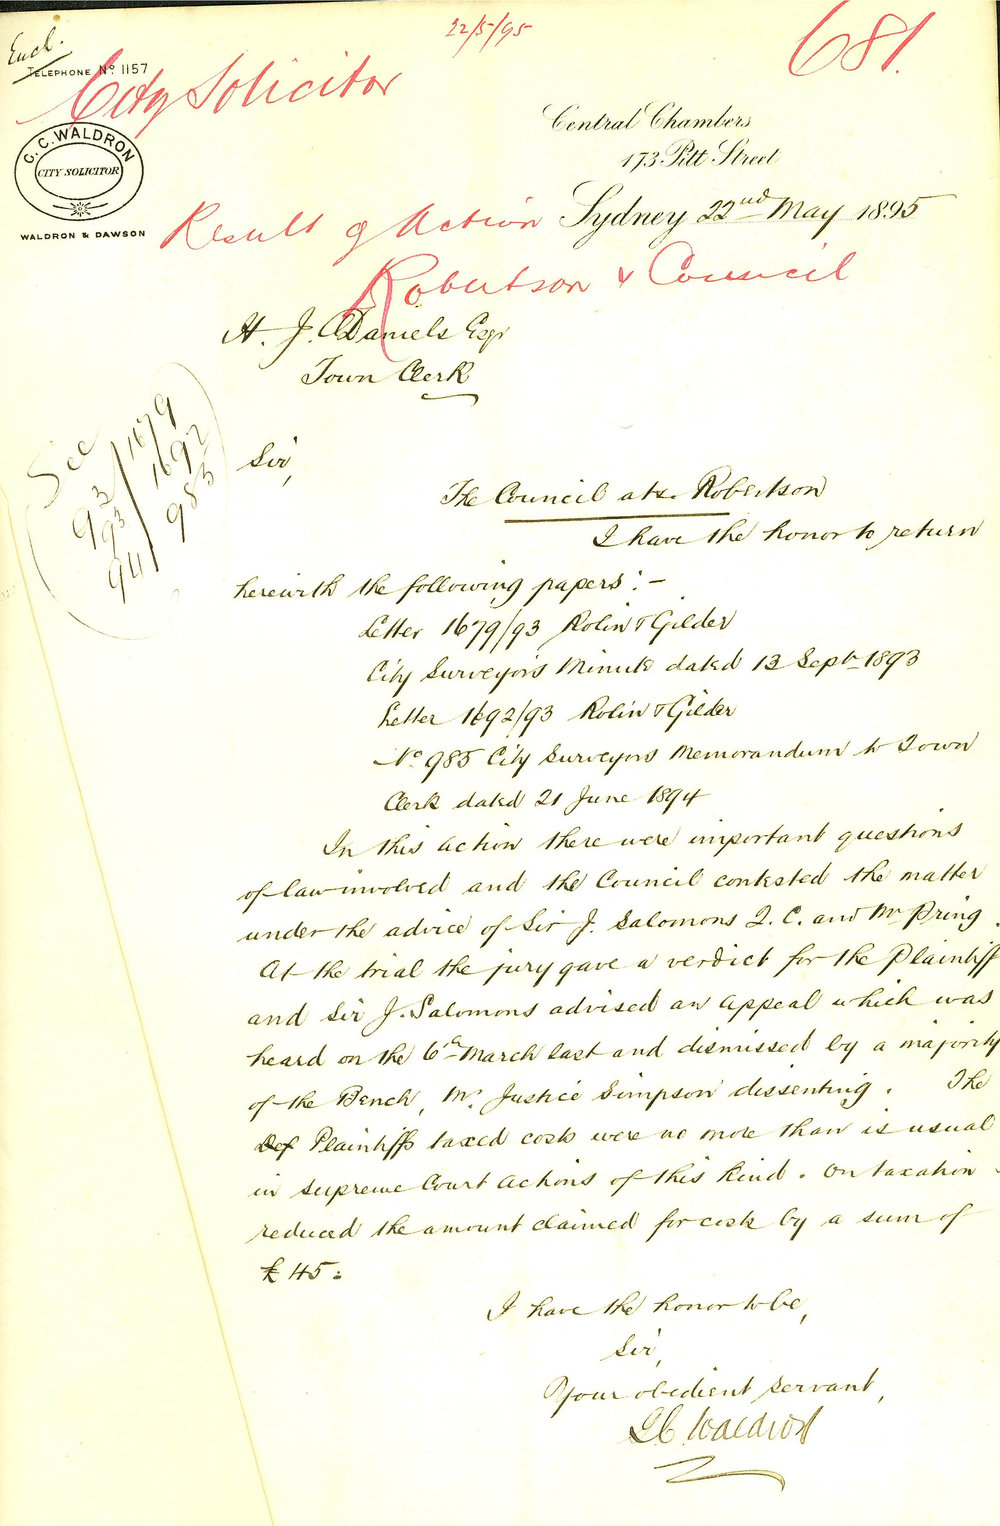 22/5/95
681.
Encl.
TELEPHONE No 1157
City Solicitor
C. C. WALDRON
CITY SOLICITOR
WALDRON & DAWSON
Central Chambers
173 Pitt Street
Sydney 22nd May 1895
Result of Action
Robertson v Council
H. J. Daniels Esqr
Town Clerk
See
93/1679
93/1692
94/985
Sir,
The Council ats. Robertson
I have the honor to return
herewith the following papers:-
Letter 1679/93 Rolin & Gilder
City Surveyors Minute dated 13 Septr 1893
Letter 1692/93 Rolin & Gilder
No 985 City Surveyors Memorandum to Town
Clerk dated 21 June 1894
In this action there were important questions
of law involved and the Council contested the matter
under the advice of Sir J. Salomons Q. C. and Mr Pring.
At the trial the jury gave a verdict for the Plaintiff
and Sir J. Salomons advised an Appeal which was
heard on the 6th March last and dismissed by a majority
of the Bench, Mr Justice Simpson dissenting. The
Def Plaintiffs taxed costs were no more than is usual
in Supreme Court Actions of this kind. On taxation
reduced the amount claimed for costs by a sum of
£45:
I have the honor to be,
Sir,
Your obedient servant,
C C Waldron